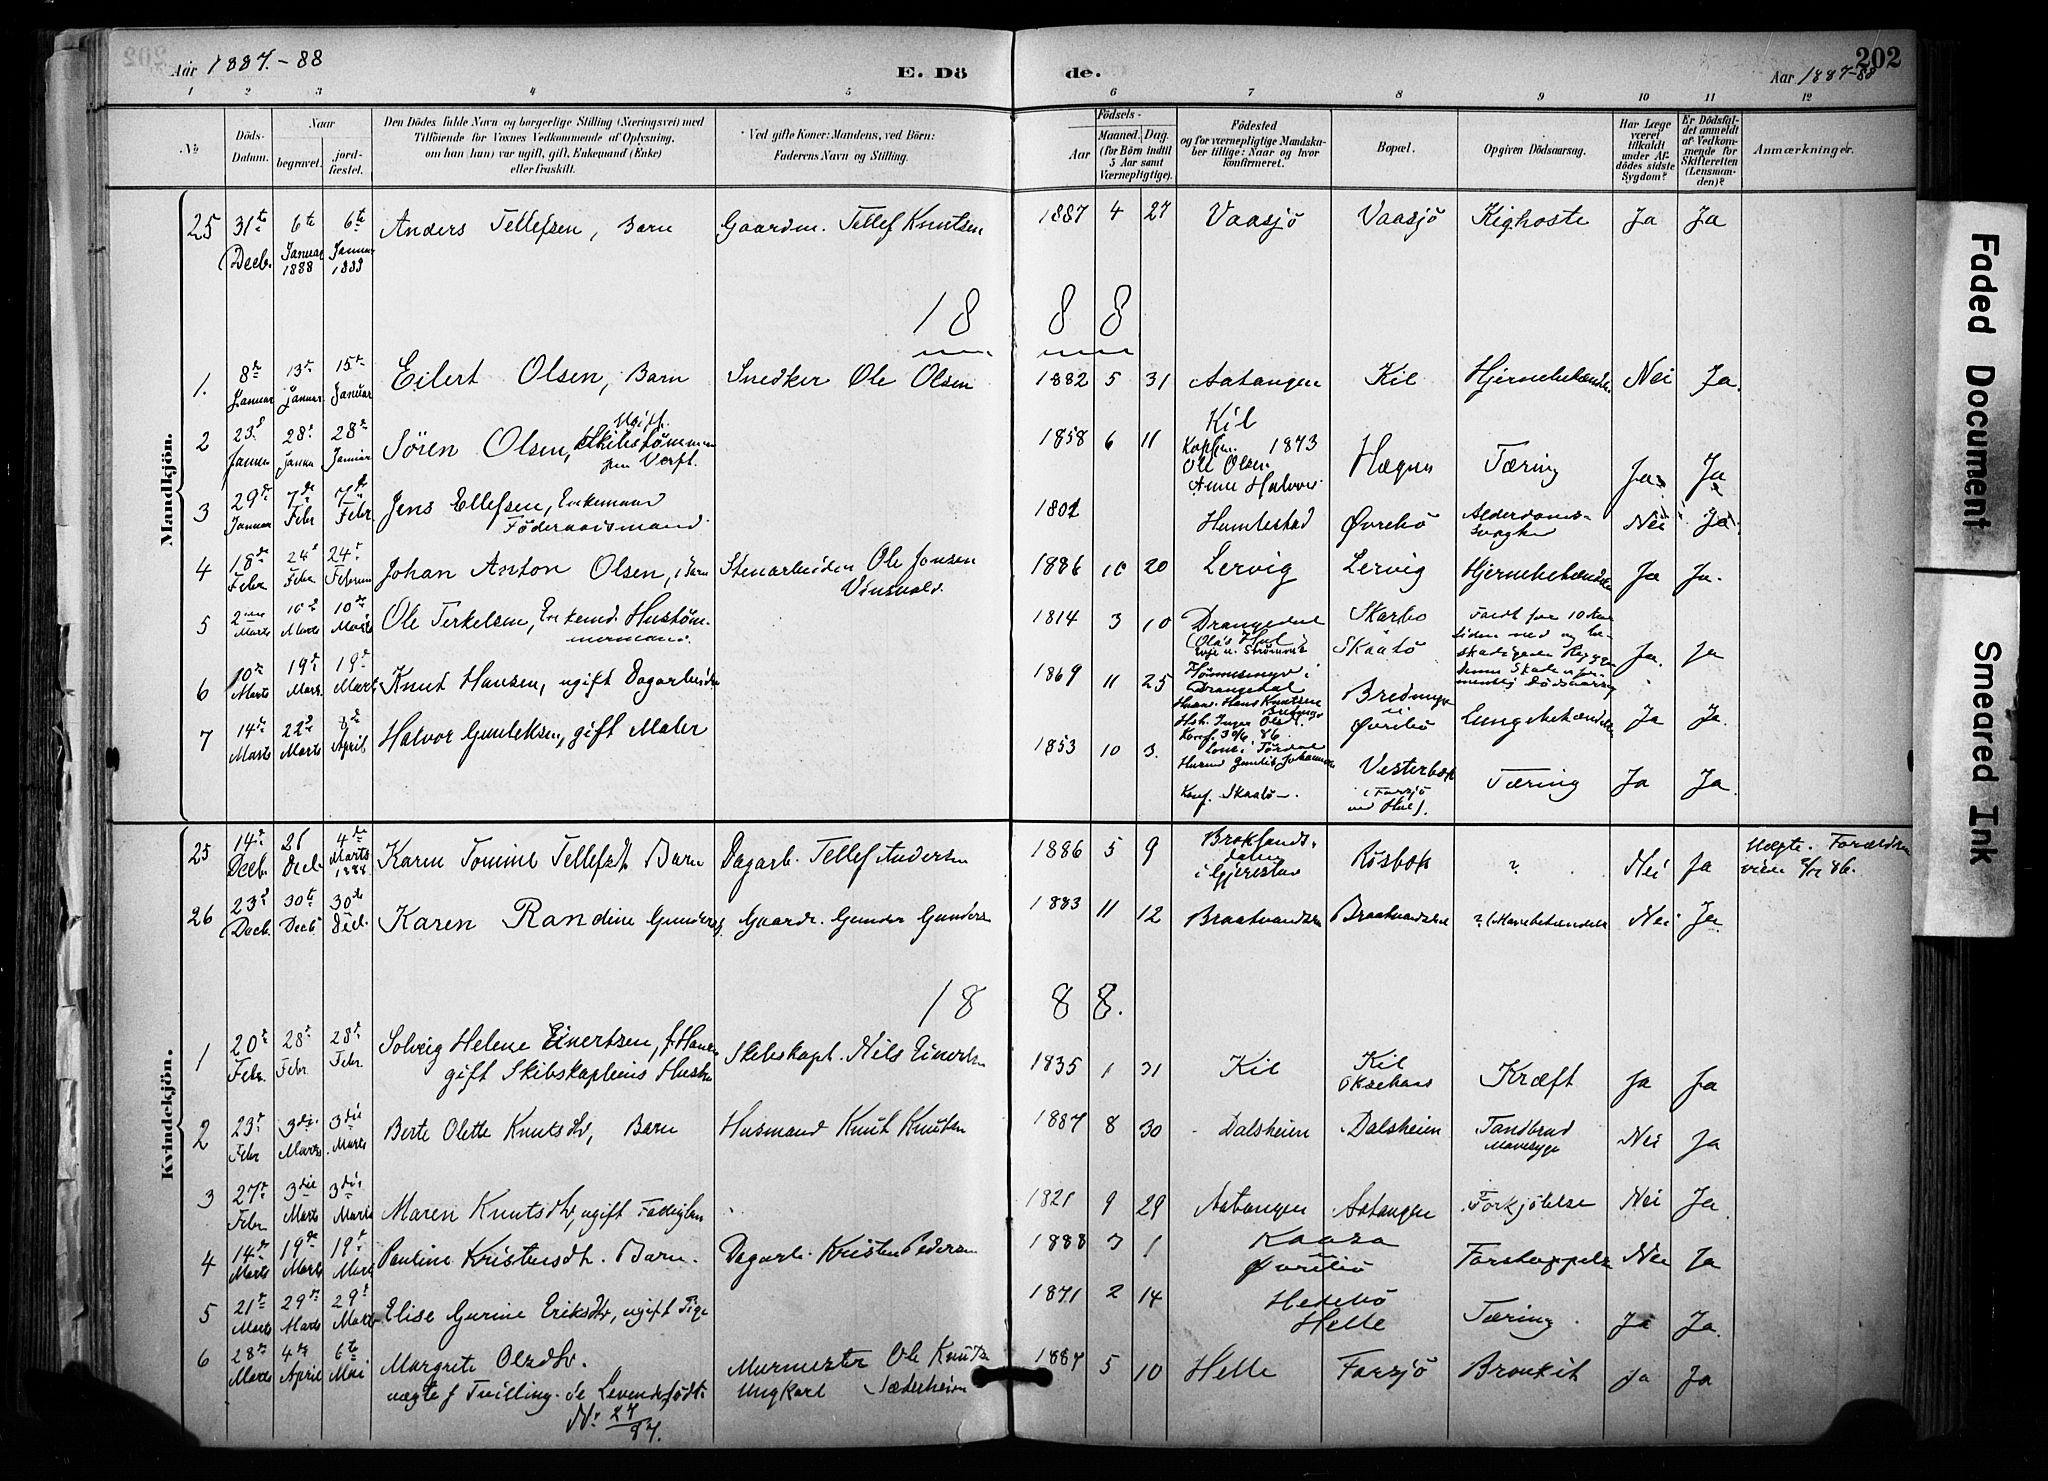 Aar 1887.-88
E. Dö de.
Aar 1887-88
202
1 2 3 4 5 6 7 8 9 10 11 12
№
Döds-Datum.
Naar
begravet.
jord-fæstet.
Den Dödes fulde Navn og borgerlige Stilling (Næringsvei) med
Tilföiende for Voxnes Vedkommende af Oplysning,
om han (hun) var ugift, gift, Enkemand (Enke)
eller fraskilt.
Ved gifte Koner: Mandens, ved Börn:
Faderens Navn og Stilling.
Födsels-
Aar
Maaned. Dag.
(for Börn indtil
5 Aar samt
Værnepligtige).
Födested
og for værnepligtige Mandska-
ber tillige: Naar og hvor
konfirmeret.
Bopæl.
Opgiven Dödsaarsag.
Har Læge
været
tilkaldt
under Af-
dödes sidste
Sygdom?
Er Dödsfal-
det anmeldt
af Vedkom-
mende for
Skifteretten
(Lensman-
den)?
Anmærkninger.
Mandkjön.
25 31te Decb. 6te Januar 1888 6te Januar 1888 Anders Tellefsen, Barn Gaardm. Tellef Knutsen 1887 4 27 Vaasjö Vaasjö Kighoste Ja Ja
1888
1. 8de Januar 13de Januar 15de Januar Eilert Olsen, Barn Snedker Ole Olsen 1882 5 31 Aatangen Kil Hjernebetændelse Nei Ja.
2 23d Januar 28de Januar 28de Januar Sören Olsen, Ugift Skibstömmermand 1858 6 11 Kil Konf. 1873 Ole Olsen Tæring Ja Ja
3 29de Januar 7de Febr 7de Febr Jens Ellefsen, Enkemand Föderaadsmand 1802 Humlestad Øvrebö Alderdoms-svaghed Nei Ja.
4 18de Febr 24d Febr 24d Februar Johan Anton Olsen, Barn Stenarbeider Ole Jonsen 1886 10 20 Lervig Lervig Hjernebetændelse Ja Ja.
5 2den Marts 10d Marts 10de Marts Ole Terkelsen, Enkemd. Hustömmermand. 1814 3 10 Drangedal Skarbo Skaatö Ja. Ja
6 10de Marts 19de Marts 19de Marts Knut Hansen, ugift Dagarbeider 1869 11 25 i Drangedal Hans Knutsen Konf. 30/6 86. i Øvrebö Lungebetændelse Ja Ja.
7 14de Marts 22d Marts 8de April Halvor Gunleksen, gift Maler 1853 10 3. i Tördal Konf. Skaatö Vesterbek i Farsjö Tæring Ja Ja.
Kvindekjön.
25 14de Decb. 26 Decb. 4de Marts 1888 Karen Tomine Tellefsdt Barn Dagarb. Tellef Andersen 1886 5 9 Broklands-dalen i Gjerestad Rösbek ? Nei Ja Uægte. Forældrene viede 86.
26 23d Decb. 30te Decb 30de Decb. Karen Randine Gundersd. Gaardm. Gunder Gunders. 1883 11 12 Braatvandseie Braatvandseie ? (Mavebetændelse Nei Ja.
1888.
1 20de Febr. 28de Febr 28de Febr. Solveig Helene Einertsen, f. Hansen gift Skibskapteins Hustru Skibskapt. Nils Einertsen 1835 1 31 Kil Kil Kræft Ja Ja
2 23de Febr 3die Marts 3die Marts Berte Olette Knutsdtr, Barn Husmand Knut Knutsen 1887 8 30 Dalsheien Dalsheien Tandbrud Mavesyge Nei Ja
3 27de Febr 3die Marts 3die Marts Maren Knutsdtr, ugift Fattiglem 1821 9 29 Aatangen Aatangen Forkjölelse Nei Ja.
4 14de Marts 19de Marts 19de Marts Pauline Kristensdt. Barn. Dagarb. Kristen Pedersen 1888 3 1 Kaasa Øvrebö Forstoppelse Nei Ja
5 21de Marts 29de Marts 29de Marts Elise Gurine Eriksdtr, ugift Pige 1871 2 14 Hedebö Helle Tæring. Ja Ja.
6 28de Marts 4de April 6te Mai Margrete Olsdtr. uægte f. Tvilling. de Levendefödt. Nr. 27/87. Murmester Ole Knutsen Ungkarl 1887 5 10 Helle Farsjö Bronkit Ja Ja
Faded Document
Smeared Ink